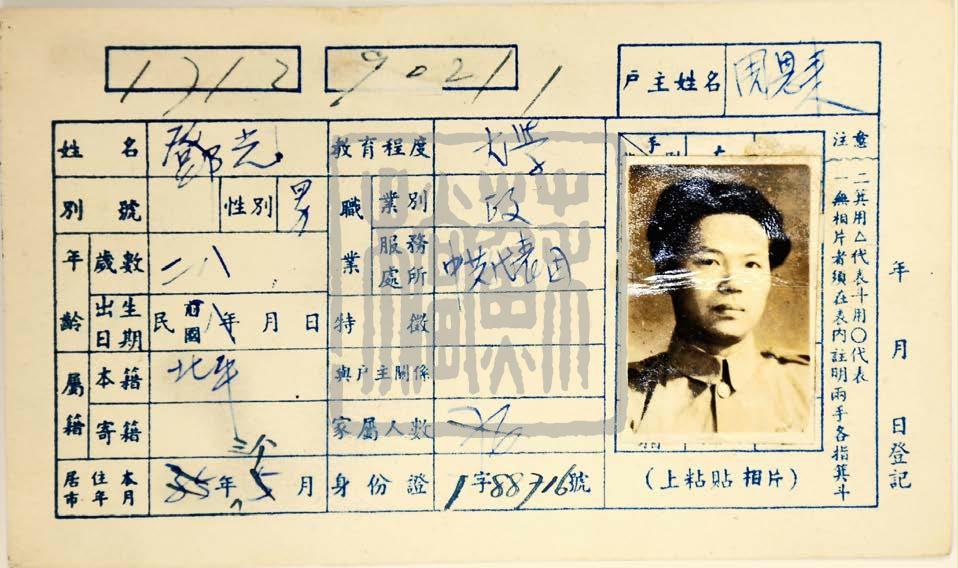 1712 9021
戶主姓名 周恩来
姓名 鄧光 教育程度 大學
別號 性別 男 職業 業別 政
年齡 歲數 二八 服務處所 中共代表团
出生日期 民國八年 月 日 特徵
屬籍 本籍 北平 與戶主關係
寄籍 家屬人數
居住本市年月 35年 三个 5月 身份證 1字88716號
(上粘貼相片)
注意
一 無相片者須在表內註明兩手各指箕斗
二 箕用△代表斗用〇代表
年 月 日登記